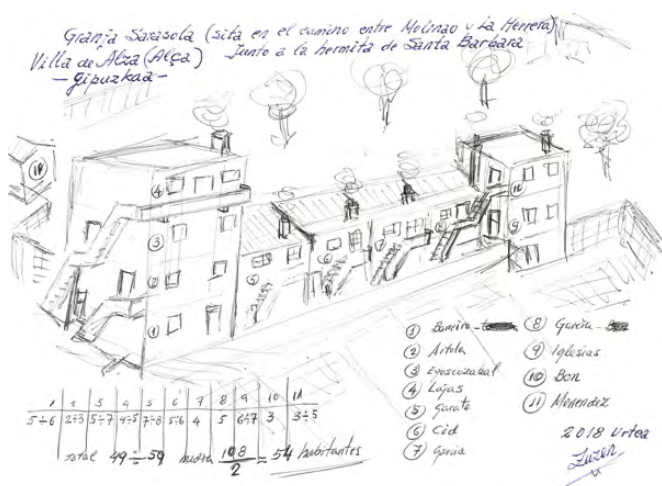 Granja Sarasola (sita en el camino entre Molinao y La Herrera)
Villa de Alza (Alça) Junto a la hermita de Santa Barbara
- Gipuzkaa -
10
4
3
2
1
5
6
7
8
11
9
1 Barreiro -
2 Artola
3 Egoscozabal
4 Lajas
5 Garate
6 Cid
7 Garcia
8 Garcia -
9 Iglesias
10 Bon
11 Menendez
1 2 3 4 5 6 7 8 9 10 11
5÷6 2÷3 5÷7 4÷5 7÷8 5÷6 4 5 6÷7 3 3÷5
total 49÷59 media 108/2 = 54 habitantes
2018 urtea